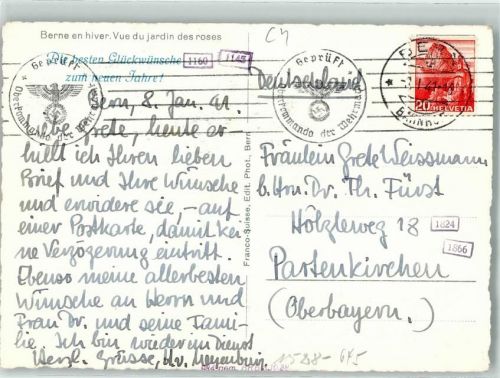 Berne en hiver. Vue du jardin des roses
C4
Die besten Glückwünsche
zum neuen Jahre!
1160
1145
Geprüft
Oberkommando der Wehrmacht
Geprüft
Oberkommando der Wehrmacht
BERN
20 HELVETIA
Deutschland
Bern, 8. Jan. 41.
Liebe Grete, heute er-
hielt ich Ihren lieben
Brief und Ihre Wünsche
und erwidere sie, – auf
einer Postkarte, damit kei
ne Verzögerung eintritt.
Ebenso meine allerbesten
Wünsche an Herrn und
Frau Dr. und seine Fami-
lie. Ich bin wieder im Dienst
Herzl. Grüsse,
Franco-Suisse, Edit. Phot., Bern
Fräulein Grete Weissmann
b. Hrn. Dr. Th. Fürst
Hölzleweg 18
1824
1866
Partenkirchen
(Oberbayern.)
1588-645